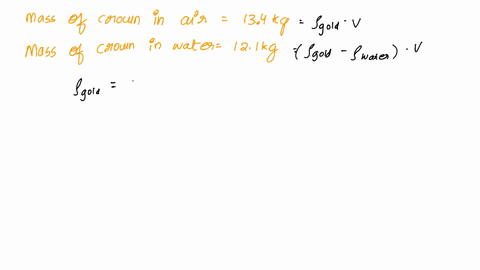 Mass of crown in air = 13.4 kg = ρgold · V
Mass of crown in water = 12.1 kg = (ρgold - ρwater) · V
ρgold =